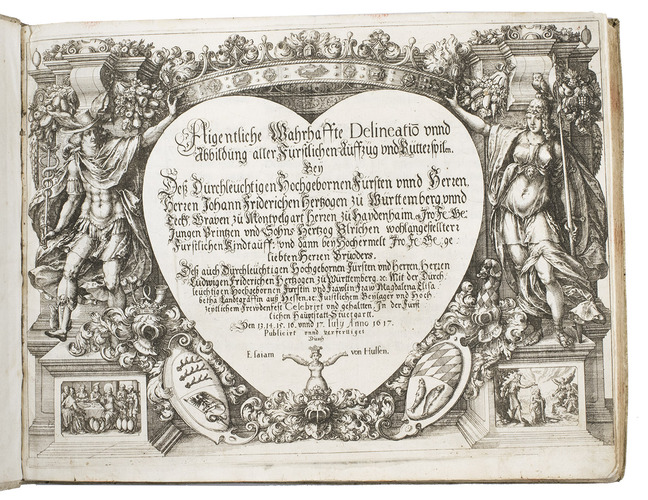 Aigentliche Wahrhaffte Delineatiō vnnd
Abbildung aller Fürstlichen Auffzüg vnd Rütterspilen.
Bey
Deß Durchleüchtigen Hochgebornen Fürsten vnnd Herren,
Herren Johann Friderichen Hertzogen zü Württemberg vnnd
Teckh Graven zü Montpelgart Herren zü Haydenhaim. Iro. Fe. Ge:
Jungen Printzen vnd Sohns Hertzog Vlrichen wohlangestellter
Fürstlichen Kindtauff: vnd dann bey Hochermelt Iro. Fe. Ge. ge
liebten Herren Brüders.
Deß auch Durchleüchtigen Hochgebornen Fürsten vnd Herren, Herren
Ludwigen Friderichen Hertzogen zü Württemberg. ꝛc. Mit der Durch
leüchtigen Hochgebornen Fürstin vnd Frawlin Fraw Magdalena Elisa
betha Landgräffin auß Hessen. ꝛc. Fürstlichem Beylager vnd Hoch
zeytlichem Frewdenfest Celebrirt vnd gehalten, In der Fürst
lichen Haüptstatt Stuetgartt.
Den 13. 14. 15. 16. vnnd 17. July Anno 1617.
Publicirt vnnd verfertiget
Durch
Esaiam von Hulsen.